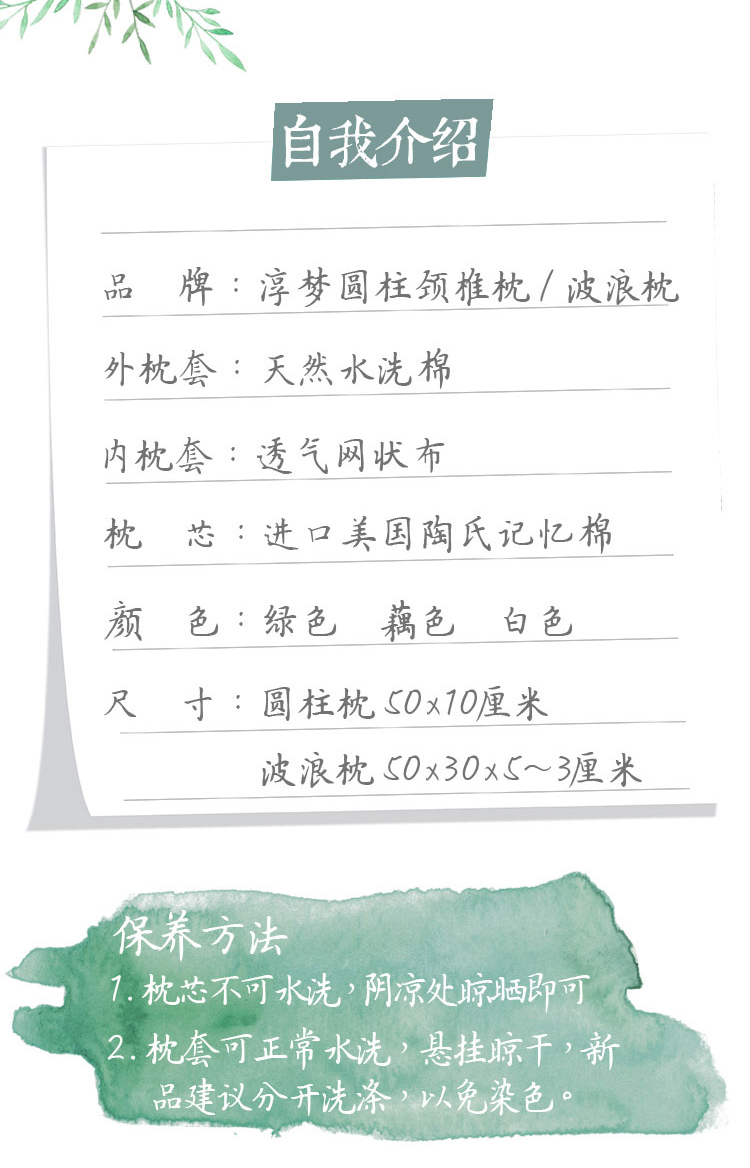 自我介绍
品 牌：淳梦圆柱颈椎枕/波浪枕
外枕套：天然水洗棉
内枕套：透气网状布
枕 芯：进口美国陶氏记忆棉
颜 色：绿色 藕色 白色
尺 寸：圆柱枕50x10厘米
波浪枕50x30x5~3厘米
保养方法
1.枕芯不可水洗，阴凉处晾晒即可
2.枕套可正常水洗，悬挂晾干，新
品建议分开洗涤，以免染色。